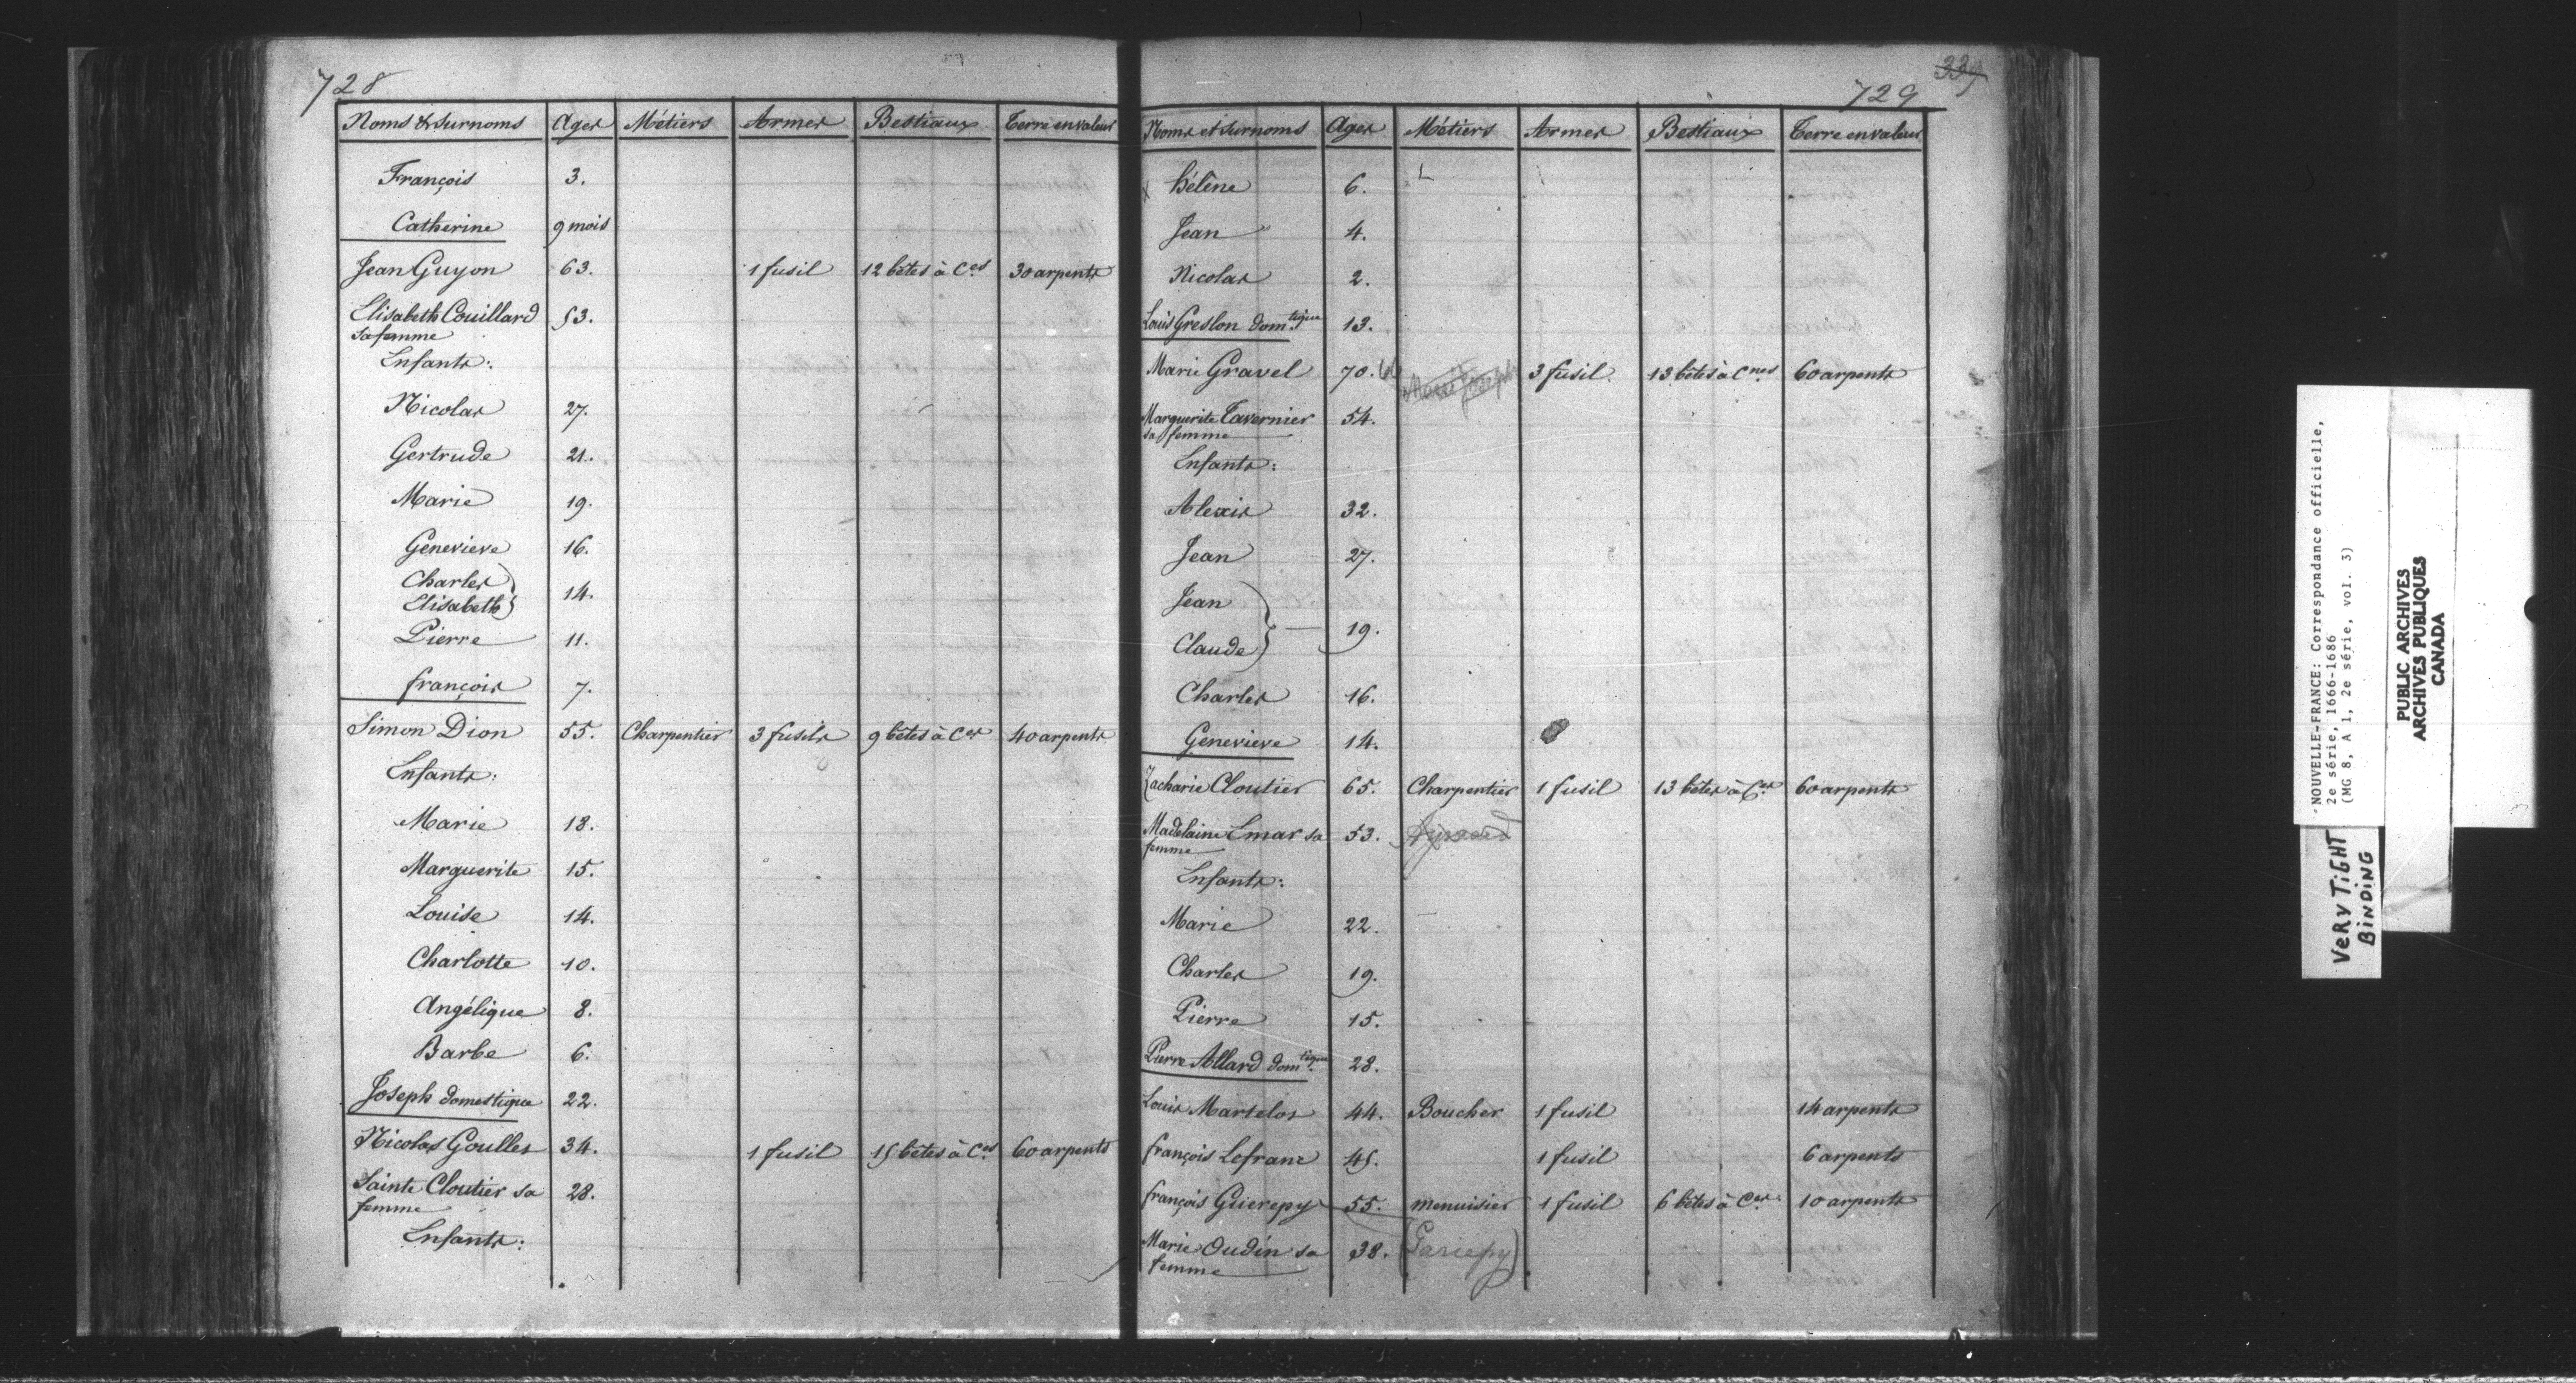 728
Noms & Surnoms Ages Métiers Armes Bestiaux Terre en valeur
François 3.
Catherine 9 mois
Jean Guyon 63. 1 fusil 12 bêtes à Ces 30 arpents
Elisabeth Couillard 53.
sa femme
Enfants:
Nicolas 27.
Gertrude 21.
Marie 19.
Genevieve 16.
Charles
Elisabeth } 14.
Pierre 11.
françois 7.
Simon Dion 55. Charpentier 3 fusils 9 bêtes à Ces 40 arpents
Enfants:
Marie 18.
Marguerite 15.
Louise 14.
Charlotte 10.
Angélique 8.
Barbe 6.
Joseph domestique 22.
Nicolas Goullet 34. 1 fusil 15 bêtes à Ces 60 arpents
Sainte Cloutier sa 28.
femme
Enfants:
339
729
Noms et Surnoms Ages Métiers Armes Bestiaux Terre en valeur
x hélène 6.
Jean 4.
Nicolas 2.
Louis Greslon dom.tique 13.
Marie Gravel 70. 3 fusil. 13 bêtes à Cnes 60 arpents
Marguerite Tavernier 54.
sa femme
Enfants:
Alexis 32.
Jean 27.
Jean
Claude } 19.
Charles 16.
Genevieve 14.
Zacharie Cloutier 65. Charpentier 1 fusil 13 bêtes à Ces 60 arpents
Madelaine Emar sa 53.
femme
Enfants:
Marie 22.
Charles 19.
Pierre 15.
Pierre Allard dom.tique 28.
Louis Martelos 44. Boucher 1 fusil 14 arpents
françois Lefranc 45. 1 fusil 6 arpents
françois Guerepy 55. menuisier 1 fusil 6 bêtes à Ces 10 arpents
Marie Oudin sa 38. (Gariepy)
femme
NOUVELLE-FRANCE: Correspondance officielle,
2e série, 1666-1686
(MG 8, A 1, 2e série, vol. 3)
PUBLIC ARCHIVES
ARCHIVES PUBLIQUES
CANADA
VERY TiGHT
BiNDiNG